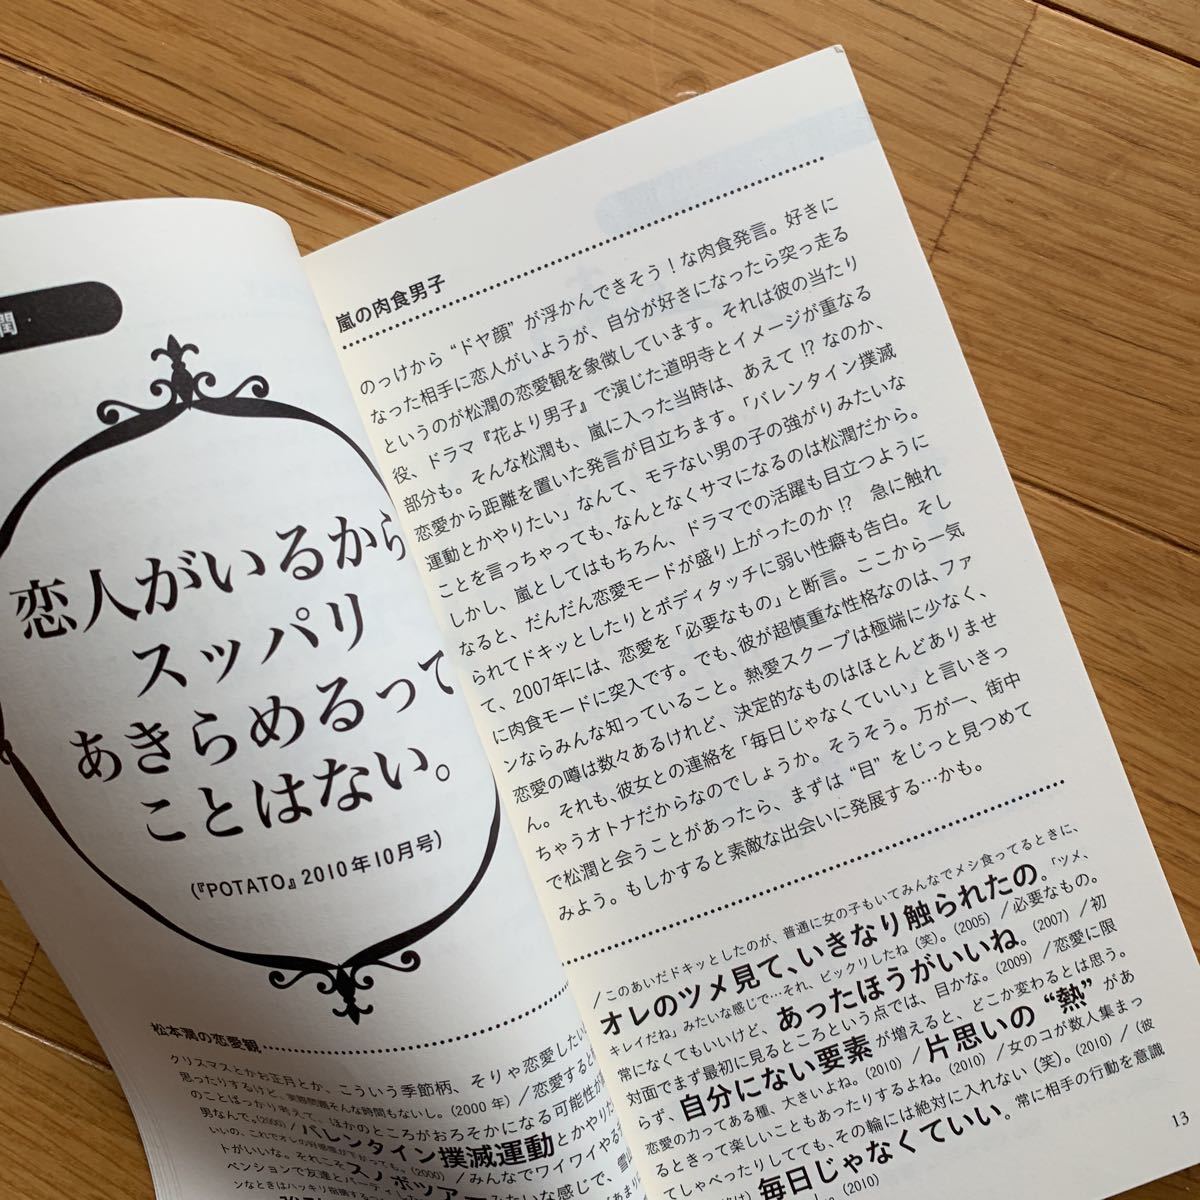 潤
恋人がいるから
スッパリ
あきらめるって
ことはない。
(『POTATO』2010年10月号)
松本潤の恋愛観
クリスマスとかお正月とか、こういう季節柄、そりゃ恋愛したい
思ったりするけど、実際問題そんな時間もないし。(2000年)/恋愛すると
のことばっかり考えて、ほかのところがおろそかになる可能性が
男なんで。(2000)/バレンタイン撲滅運動とかやりた
トがいいな。それこそスノボツアー
/みんなでワイワイやる
ペンションで友達とパーティ
みたいな感じで、雪
嵐の肉食男子
のっけから“ドヤ顔”が浮かんできそう!な肉食発言。好きに
なった相手に恋人がいようが、自分が好きになったら突っ走る
というのが松潤の恋愛観を象徴しています。それは彼の当たり
役、ドラマ『花より男子』で演じた道明寺とイメージが重なる
部分も。そんな松潤も、嵐に入った当時は、あえて!?なのか、
恋愛から距離を置いた発言が目立ちます。「バレンタイン撲滅
運動とかやりたい」なんて、モテない男の子の強がりみたいな
ことを言っちゃっても、なんとなくサマになるのは松潤だから。
しかし、嵐としてはもちろん、ドラマでの活躍も目立つように
なると、だんだん恋愛モードが盛り上がったのか!? 急に触れ
られてドキッとしたりとボディタッチに弱い性癖も告白。そし
て、2007年には、恋愛を「必要なもの」と断言。ここから一気
に肉食モードに突入です。でも、彼が超慎重な性格なのは、ファ
ンならみんな知っていること。熱愛スクープは極端に少なく、
恋愛の噂は数々あるけれど、決定的なものはほとんどありませ
ん。それも、彼女との連絡を「毎日じゃなくていい」と言いきっ
ちゃうオトナだからなのでしょうか。そうそう。万が一、街中
で松潤と会うことがあったら、まずは“目”をじっと見つめて
みよう。もしかすると素敵な出会いに発展する…かも。
/このあいだドキッとしたのが、普通に女の子もいてみんなでメシ食ってるときに、
オレのツメ見て、いきなり触られたの。「ツメ、
キレイだね」みたいな感じで…それ、ビックリしたね(笑)。(2005)/必要なもの。
常になくてもいいけど、あったほうがいいね。(2007)/初
対面でまず最初に見るところという点では、目かな。(2009)/恋愛に限
らず、自分にない要素が増えると、どこか変わるとは思う。
恋愛の力ってある種、大きいよね。(2010)/片思いの“熱”があ
るときって楽しいこともあったりするよね。(2010)/女のコが数人集まっ
てしゃべったりしてても、その輪には絶対に入れない(笑)。(2010)/(彼
毎日じゃなくていい。常に相手の行動を意識
(2010)
13